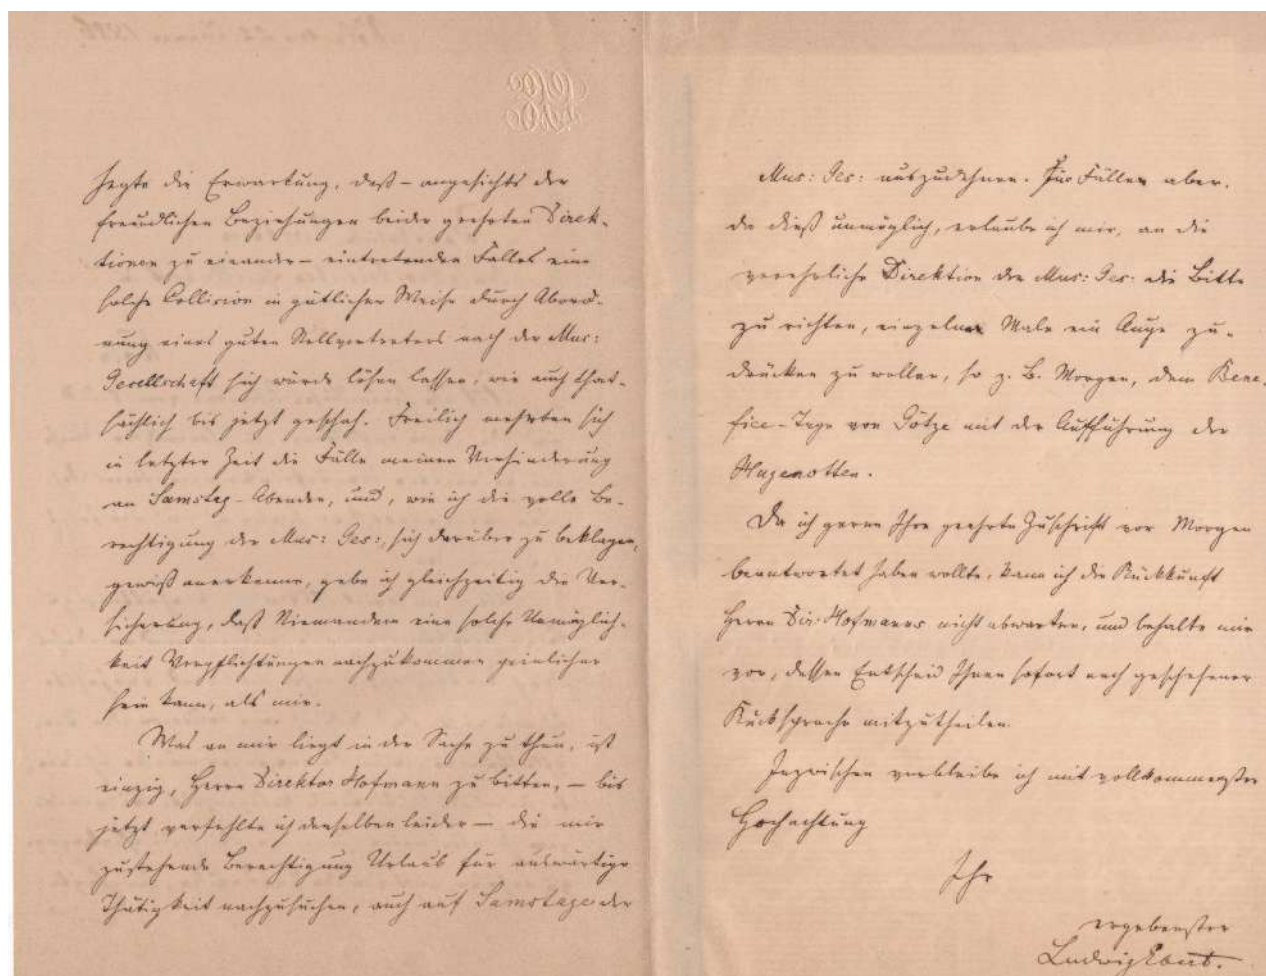 hegte die Erwartung, daß – angesichts der
freundlichen Beziehungen beider geehrten Direk-
tionen zu einander – eintretenden Falles eine
solche Collision in gütlicher Weise durch Abord-
nung eines guten Stellvertreters nach der Mus:
Gesellschaft sich würde lösen lassen, wie auch that-
sächlich bis jetzt geschah. Freilich mehrten sich
in letzter Zeit die Fälle meiner Verhinderung
an Samstag-Abenden, und, wie ich die volle Be-
rechtigung der Mus: Ges:, sich darüber zu beklagen,
gewiß anerkenne, gebe ich gleichzeitig die Ver-
sicherung, daß Niemandem eine solche Unmöglich-
keit Verpflichtungen nachzukommen peinlicher
sein kann, als mir.
Was an mir liegt in der Sache zu thun, ist
einzig, Herrn Direktor Hofmann zu bitten, – bis
jetzt verfehlte ich denselben leider – die mir
zustehende Berechtigung Urlaub für auswärtige
Thätigkeit nachzusuchen, auch auf Samstage der
Mus: Ges: auszudehnen. Für Fälle aber,
da dieß unmöglich, erlaube ich mir, an die
verehrliche Direktion der Mus: Ges: die Bitte
zu richten, einzelne Male ein Auge zu-
drücken zu wollen, so z. B. Morgen, dem Bene-
fice-Tage von Götze mit der Aufführung der
Hugenotten.
Da ich gerne Ihre geehrte Zuschrift vor Morgen
beantwortet haben wollte, kann ich die Rückkunft
Herrn Dir. Hofmanns nicht abwarten, und behalte mir
vor, dessen Entscheid Ihnen sofort nach geschehener
Rücksprache mitzutheilen.
Inzwischen verbleibe ich mit vollkommenster
Hochachtung
Ihr
ergebenster
Ludwig Ebert.